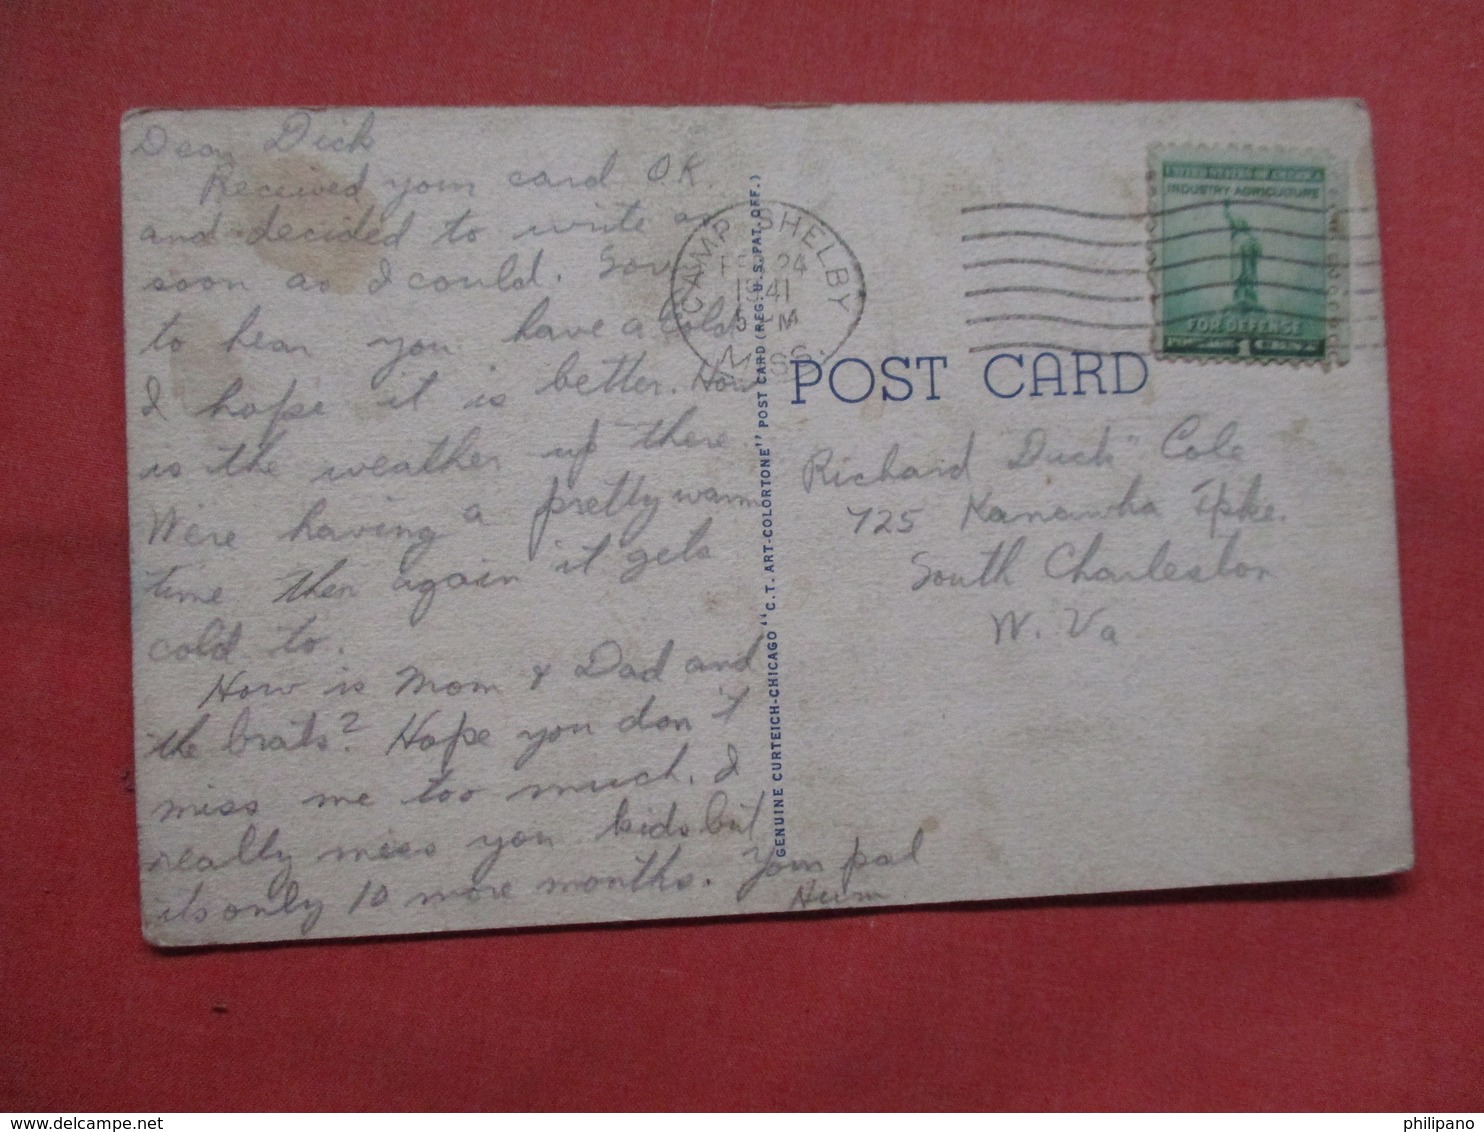 Dear Dick
Received your card O.K.
and decided to write as
soon as I could. Sorry
to hear you have a cold
I hope it is better. How
is the weather up there
We're having a pretty warm
time then again it gets
cold to.
How is Mom & Dad and
the brats? Hope you don't
miss me too much. I
really miss you kids but
its only 10 more months. Your pal
CAMP SHELBY
FEB 24
1941
5 PM
MISS.
GENUINE CURTEICH-CHICAGO "C.T. ART-COLORTONE" POST CARD (REG. U.S. PAT. OFF.)
UNITED STATES OF AMERICA
INDUSTRY AGRICULTURE
FOR DEFENSE
POSTAGE 1 CENT
POST CARD
Richard "Dick" Cole
725 Kanawha Tpke.
South Charleston
W. Va
http://www.delcampe.net
philipano